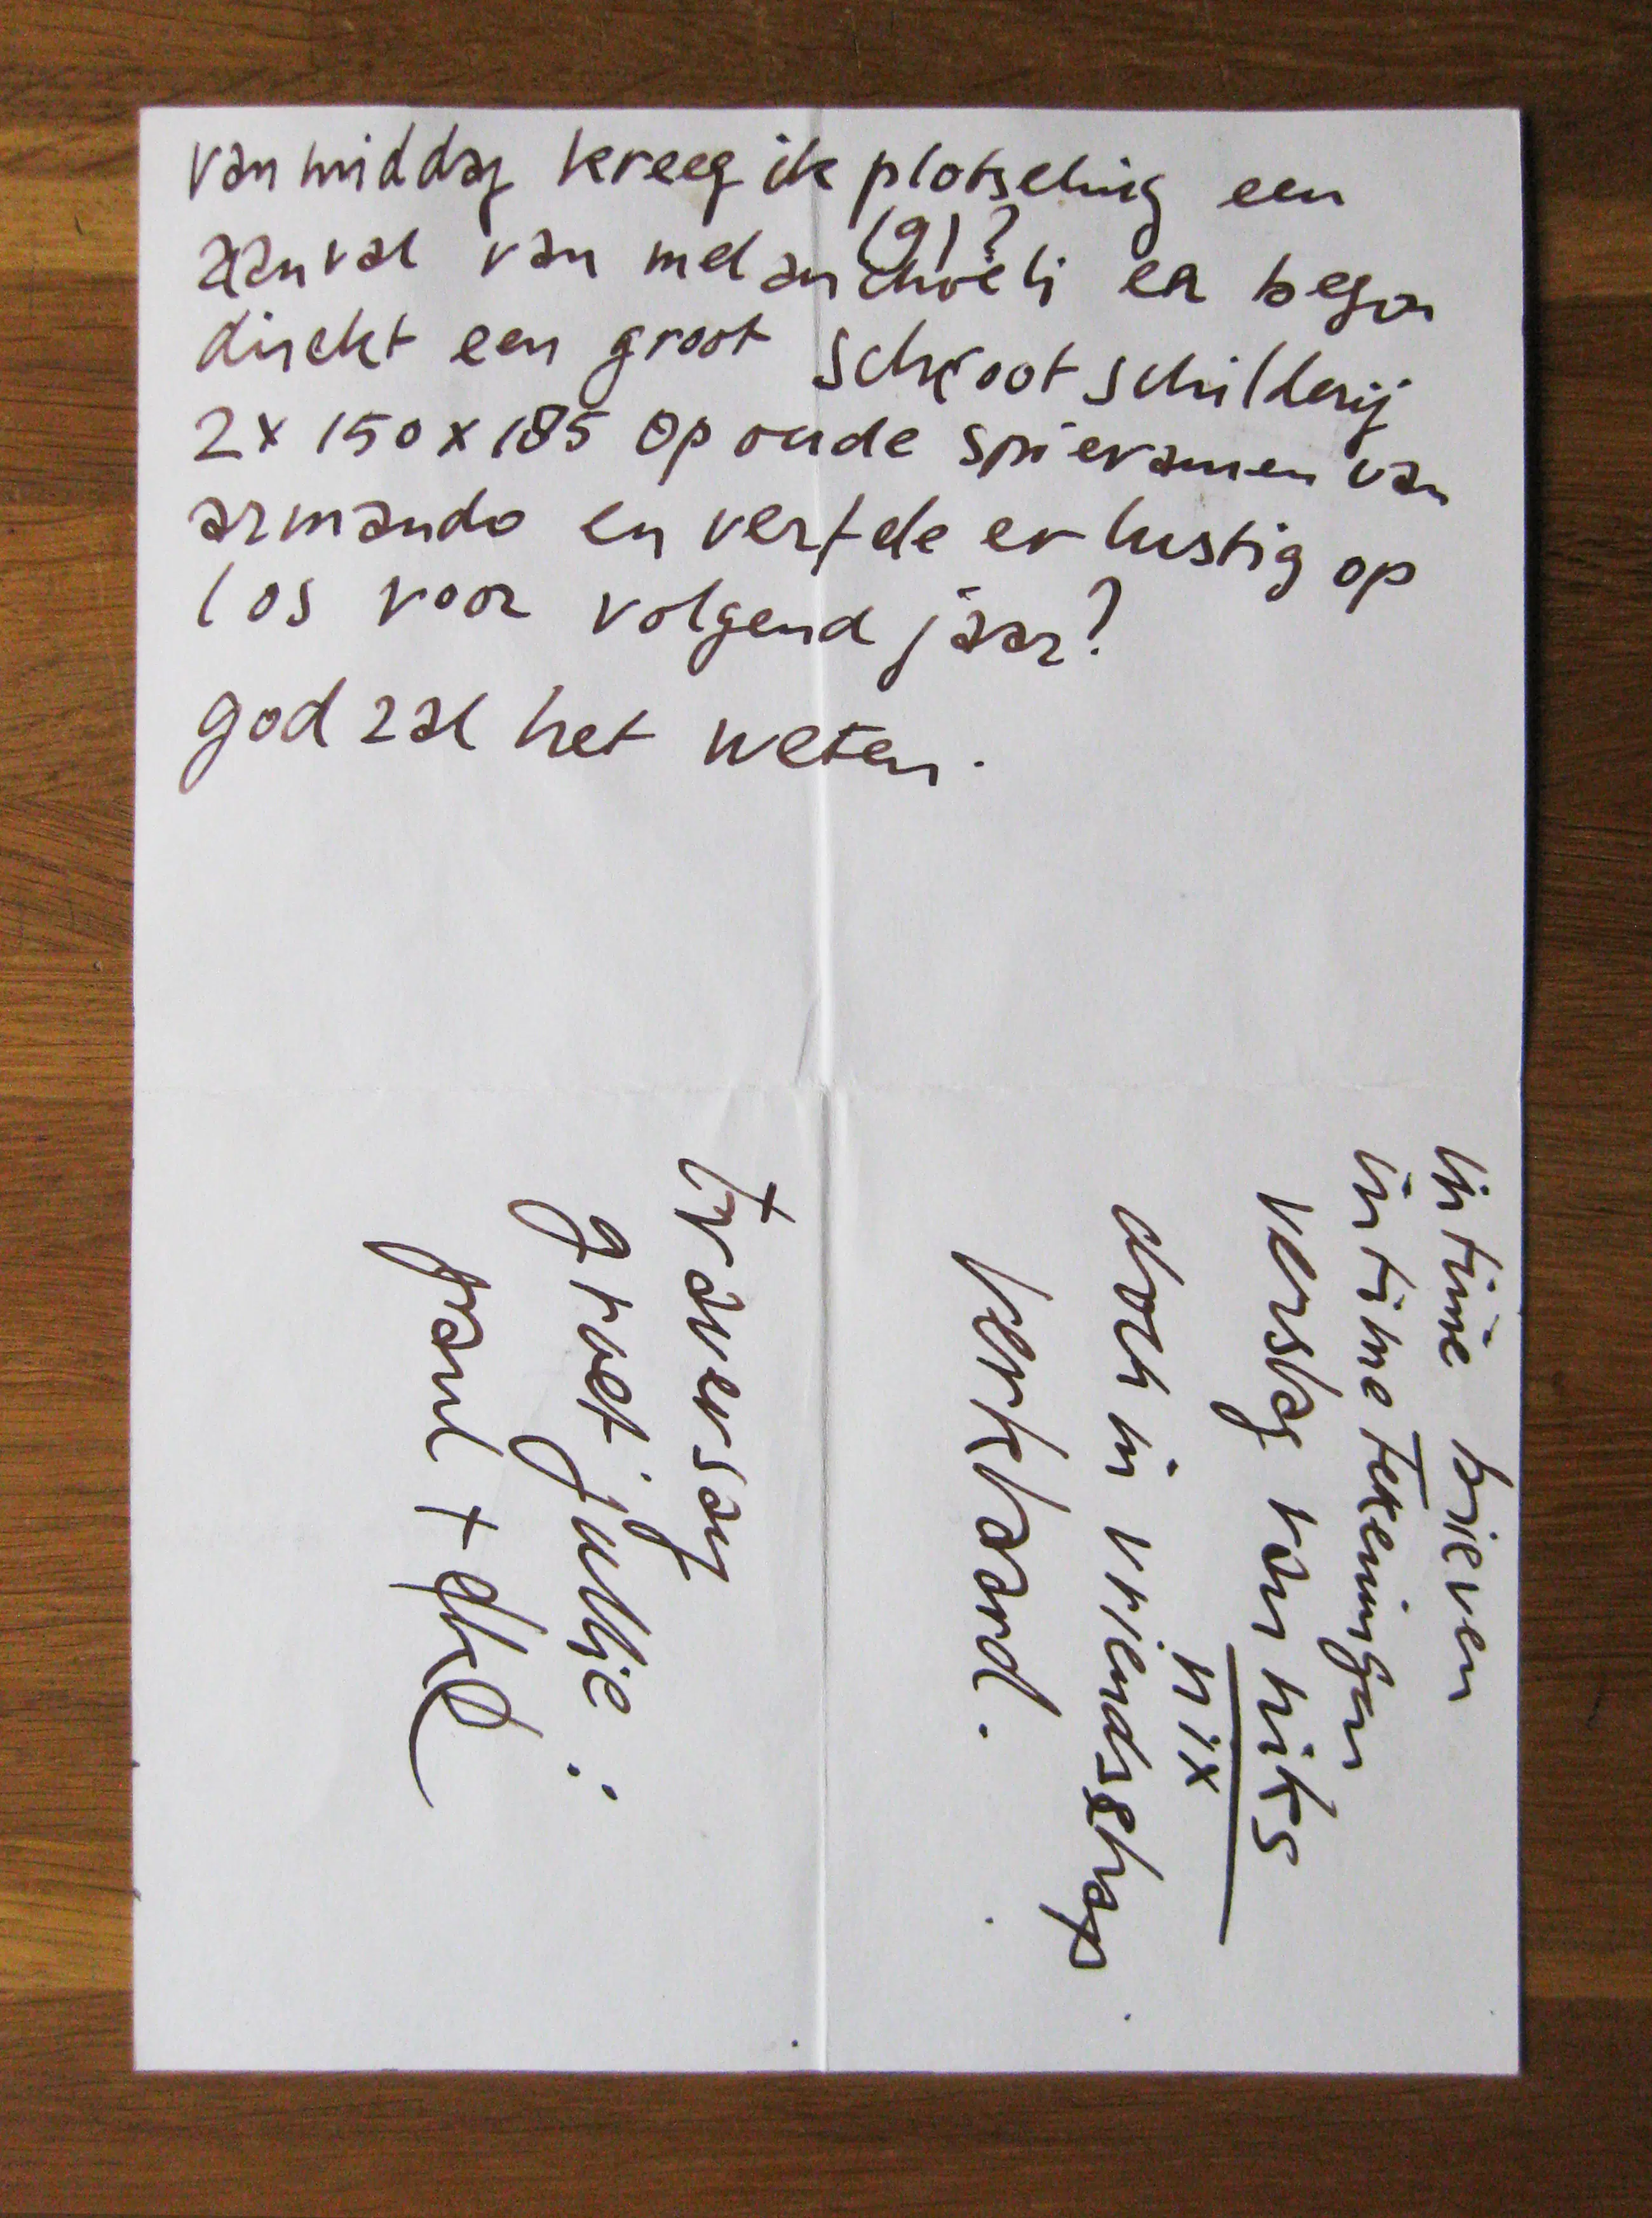 vanmiddag kreeg ik plotseling een
(g)?
aanval van melancholi en begon
direkt een groot schroot schilderij
2x 150x185 op oude spieramen van
armando en verfde er lustig op
los voor volgend jaar?
god zal het weten.
intime brieven
intime tekeningen
verslag van niks
nix
doch in vriendschap
verklaard.
traversay
groet jullie:
paul +